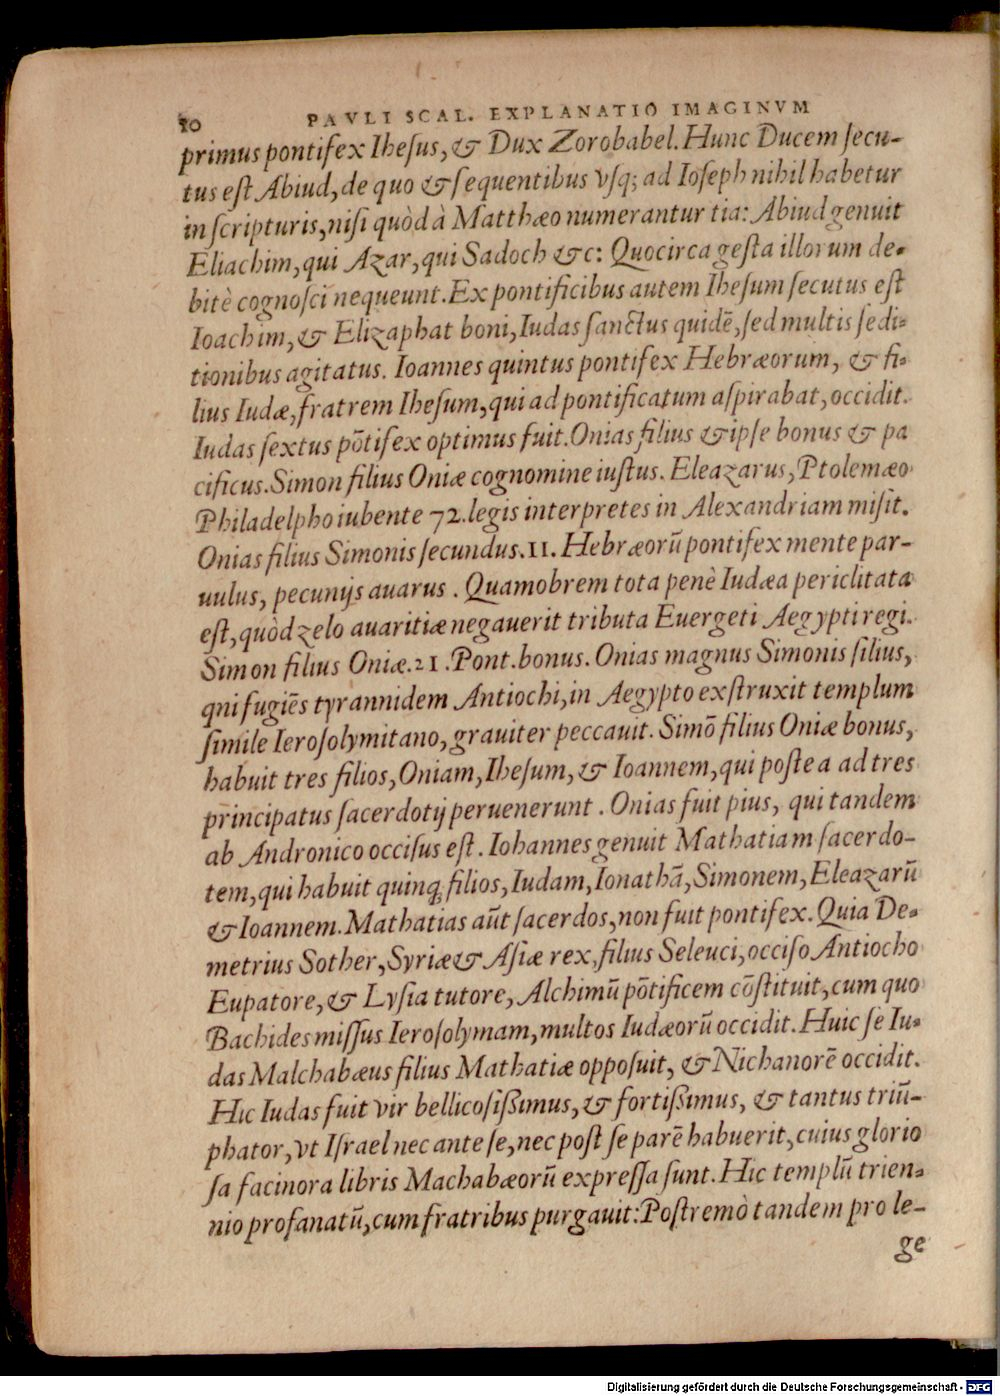 50 PAVLI SCAL. EXPLANATIO IMAGINVM
primus pontifex Iheſus, & Dux Zorobabel. Hunc Ducem ſecu-
tus eſt Abiud, de quo & ſequentibus vſq; ad Ioſeph nihil habetur
in ſcripturis, niſi quòd à Matthæo numerantur tia: Abiud genuit
Eliachim, qui Azar, qui Sadoch &c: Quocirca geſta illorum de-
bitè cognoſci nequeunt. Ex pontificibus autem Iheſum ſecutus eſt
Ioachim, & Elizaphat boni, Iudas ſanctus quidē, ſed multis ſedi-
tionibus agitatus. Ioannes quintus pontifex Hebræorum, & fi-
lius Iudæ, fratrem Iheſum, qui ad pontificatum aſpirabat, occidit.
Iudas ſextus pōtifex optimus fuit. Onias filius & ipſe bonus & pa
cificus. Simon filius Oniæ cognomine iuſtus. Eleazarus, Ptolemæo
Philadelpho iubente 72. legis interpretes in Alexandriam miſit.
Onias filius Simonis ſecundus. 11. Hebræorū pontifex mente par-
uulus, pecunijs auarus. Quamobrem tota penè Iudæa periclitata
eſt, quòd zelo auaritiæ negauerit tributa Euergeti Aegypti regi.
Simon filius Oniæ. 21. Pont. bonus. Onias magnus Simonis filius,
qni fugiēs tyrannidem Antiochi, in Aegypto exſtruxit templum
ſimile Ieroſolymitano, grauiter peccauit. Simō filius Oniæ bonus,
habuit tres filios, Oniam, Iheſum, & Ioannem, qui poſtea ad tres
principatus ſacerdotij peruenerunt. Onias fuit pius, qui tandem
ab Andronico occiſus eſt. Iohannes genuit Mathatiam ſacerdo-
tem, qui habuit quinq; filios, Iudam, Ionathā, Simonem, Eleazarū
& Ioannem. Mathatias aūt ſacerdos, non fuit pontifex. Quia De-
metrius Sother, Syriæ & Aſiæ rex, filius Seleuci, occiſo Antiocho
Eupatore, & Lyſia tutore, Alchimū pōtificem cōſtituit, cum quo
Bachides miſſus Ieroſolymam, multos Iudæorū occidit. Huic ſe Iu-
das Malchabæus filius Mathatiæ oppoſuit, & Nichanorē occidit.
Hic Iudas fuit vir bellicoſiſsimus, & fortiſsimus, & tantus triū-
phator, vt Iſrael nec ante ſe, nec poſt ſe parē habuerit, cuius glorio
ſa facinora libris Machabæorū expreſſa ſunt. Hic templū trien-
nio profanatū, cum fratribus purgauit: Poſtremò tandem pro le-
ge
Digitalisierung gefördert durch die Deutsche Forschungsgemeinschaft - DFG